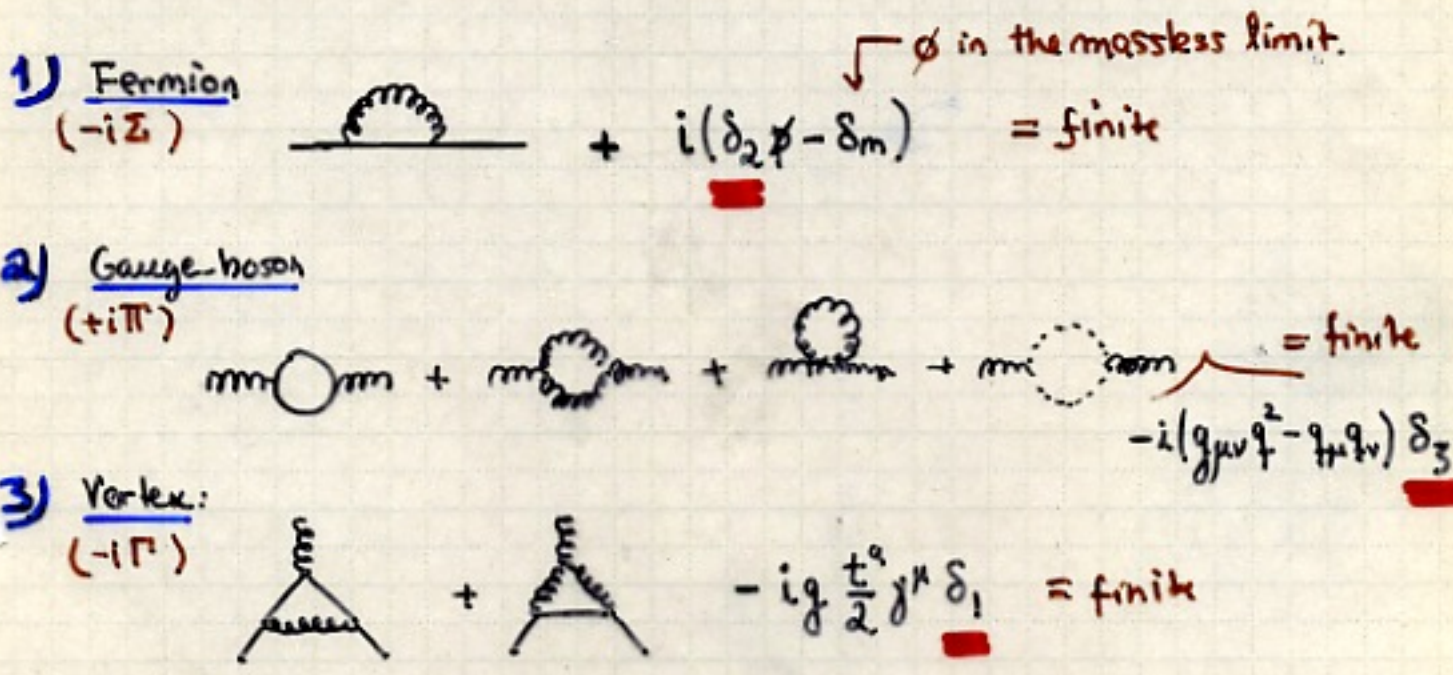 ø in the massless limit.
1) Fermion
(-iΣ) + i(δ₂p̸ - δm) = finite
2) Gauge-boson
(+iΠ) = finite
+ + +
-i(gμν q² - qμqν) δ₃
3) Vertex:
(-iΓ)
+ - ig tᵃ/2 γ^μ δ₁ = finite